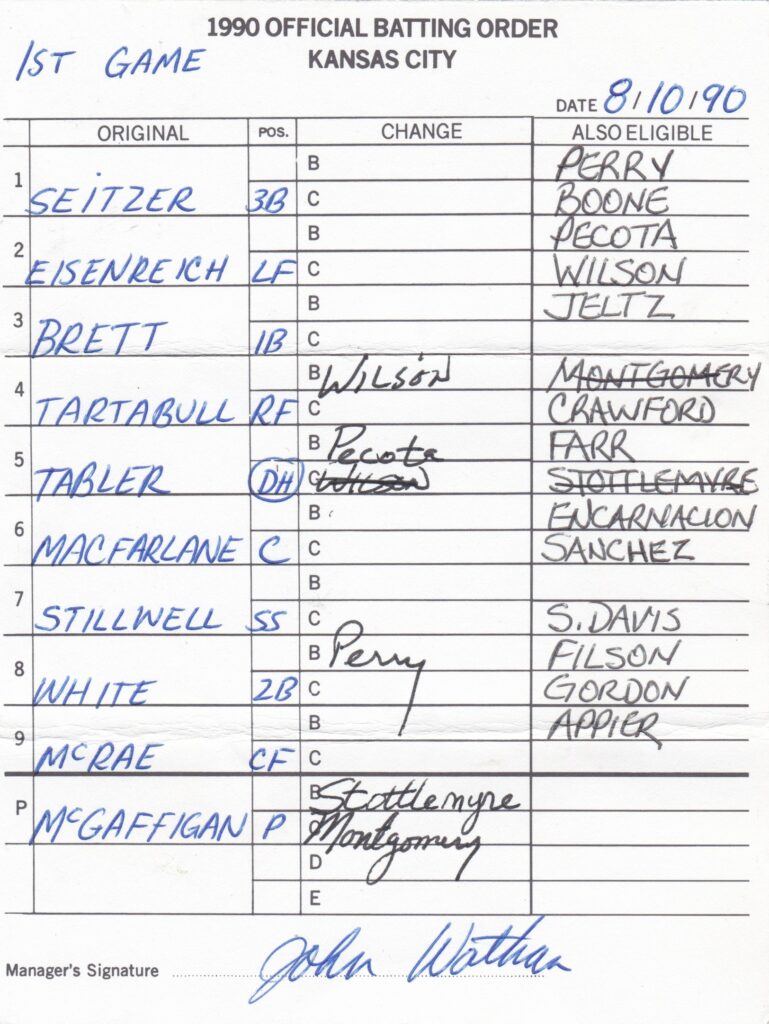 1990 OFFICIAL BATTING ORDER
1ST GAME KANSAS CITY
DATE 8/10/90
ORIGINAL POS. CHANGE ALSO ELIGIBLE
B PERRY
1 SEITZER 3B C BOONE
B PECOTA
2 EISENREICH LF C WILSON
B JELTZ
3 BRETT 1B C
B WILSON MONTGOMERY
4 TARTABULL RF C CRAWFORD
B Pecota FARR
5 TABLER DH C WILSON STOTTLEMYRE
B ENCARNACION
6 MACFARLANE C C SANCHEZ
B
7 STILLWELL SS C S. DAVIS
B Perry FILSON
8 WHITE 2B C GORDON
B APPIER
9 McRAE CF C
B Stottlemyre
P McGAFFIGAN P Montgomery
D
E
Manager's Signature John Wathan